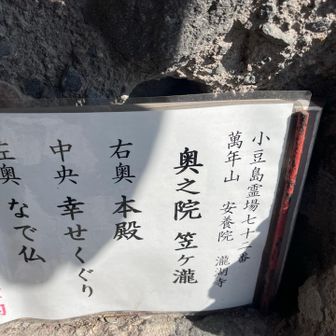 小豆島霊場七十二番
萬年山 安養院 瀧湖寺
奥之院 笠ヶ瀧
右奥 本殿
中央 幸せくぐり
左奥 なで仏